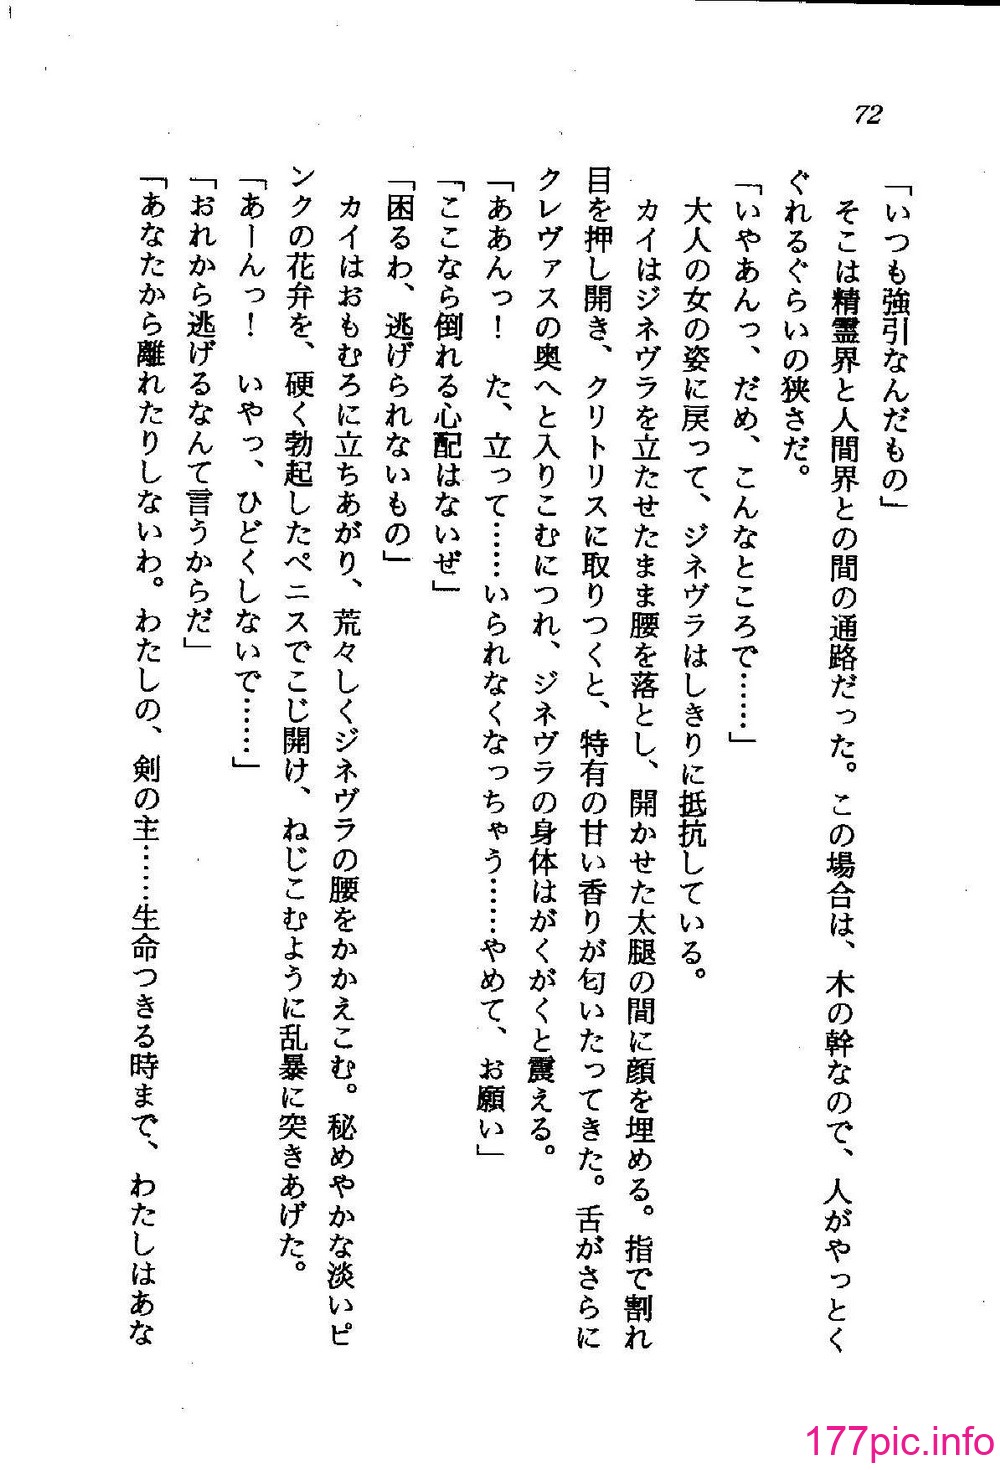 72
「いつも強引なんだもの」
そこは精霊界と人間界との間の通路だった。この場合は、木の幹なので、人がやっとく
ぐれるぐらいの狭さだ。
「いやあんっ、だめ、こんなところで……」
大人の女の姿に戻って、ジネヴラはしきりに抵抗している。
カイはジネヴラを立たせたまま腰を落とし、開かせた太腿の間に顔を埋める。指で割れ
目を押し開き、クリトリスに取りつくと、特有の甘い香りが匂いたってきた。舌がさらに
クレヴァスの奥へと入りこむにつれ、ジネヴラの身体はがくがくと震える。
「ああんっ！　た、立って……いられなくなっちゃう……やめて、お願い」
「ここなら倒れる心配はないぜ」
「困るわ、逃げられないもの」
カイはおもむろに立ちあがり、荒々しくジネヴラの腰をかかえこむ。秘めやかな淡いピ
ンクの花弁を、硬く勃起したペニスでこじ開け、ねじこむように乱暴に突きあげた。
「あーんっ！　いやっ、ひどくしないで……」
「おれから逃げるなんて言うからだ」
「あなたから離れたりしないわ。わたしの、剣の主……生命つきる時まで、わたしはあな
177pic.info